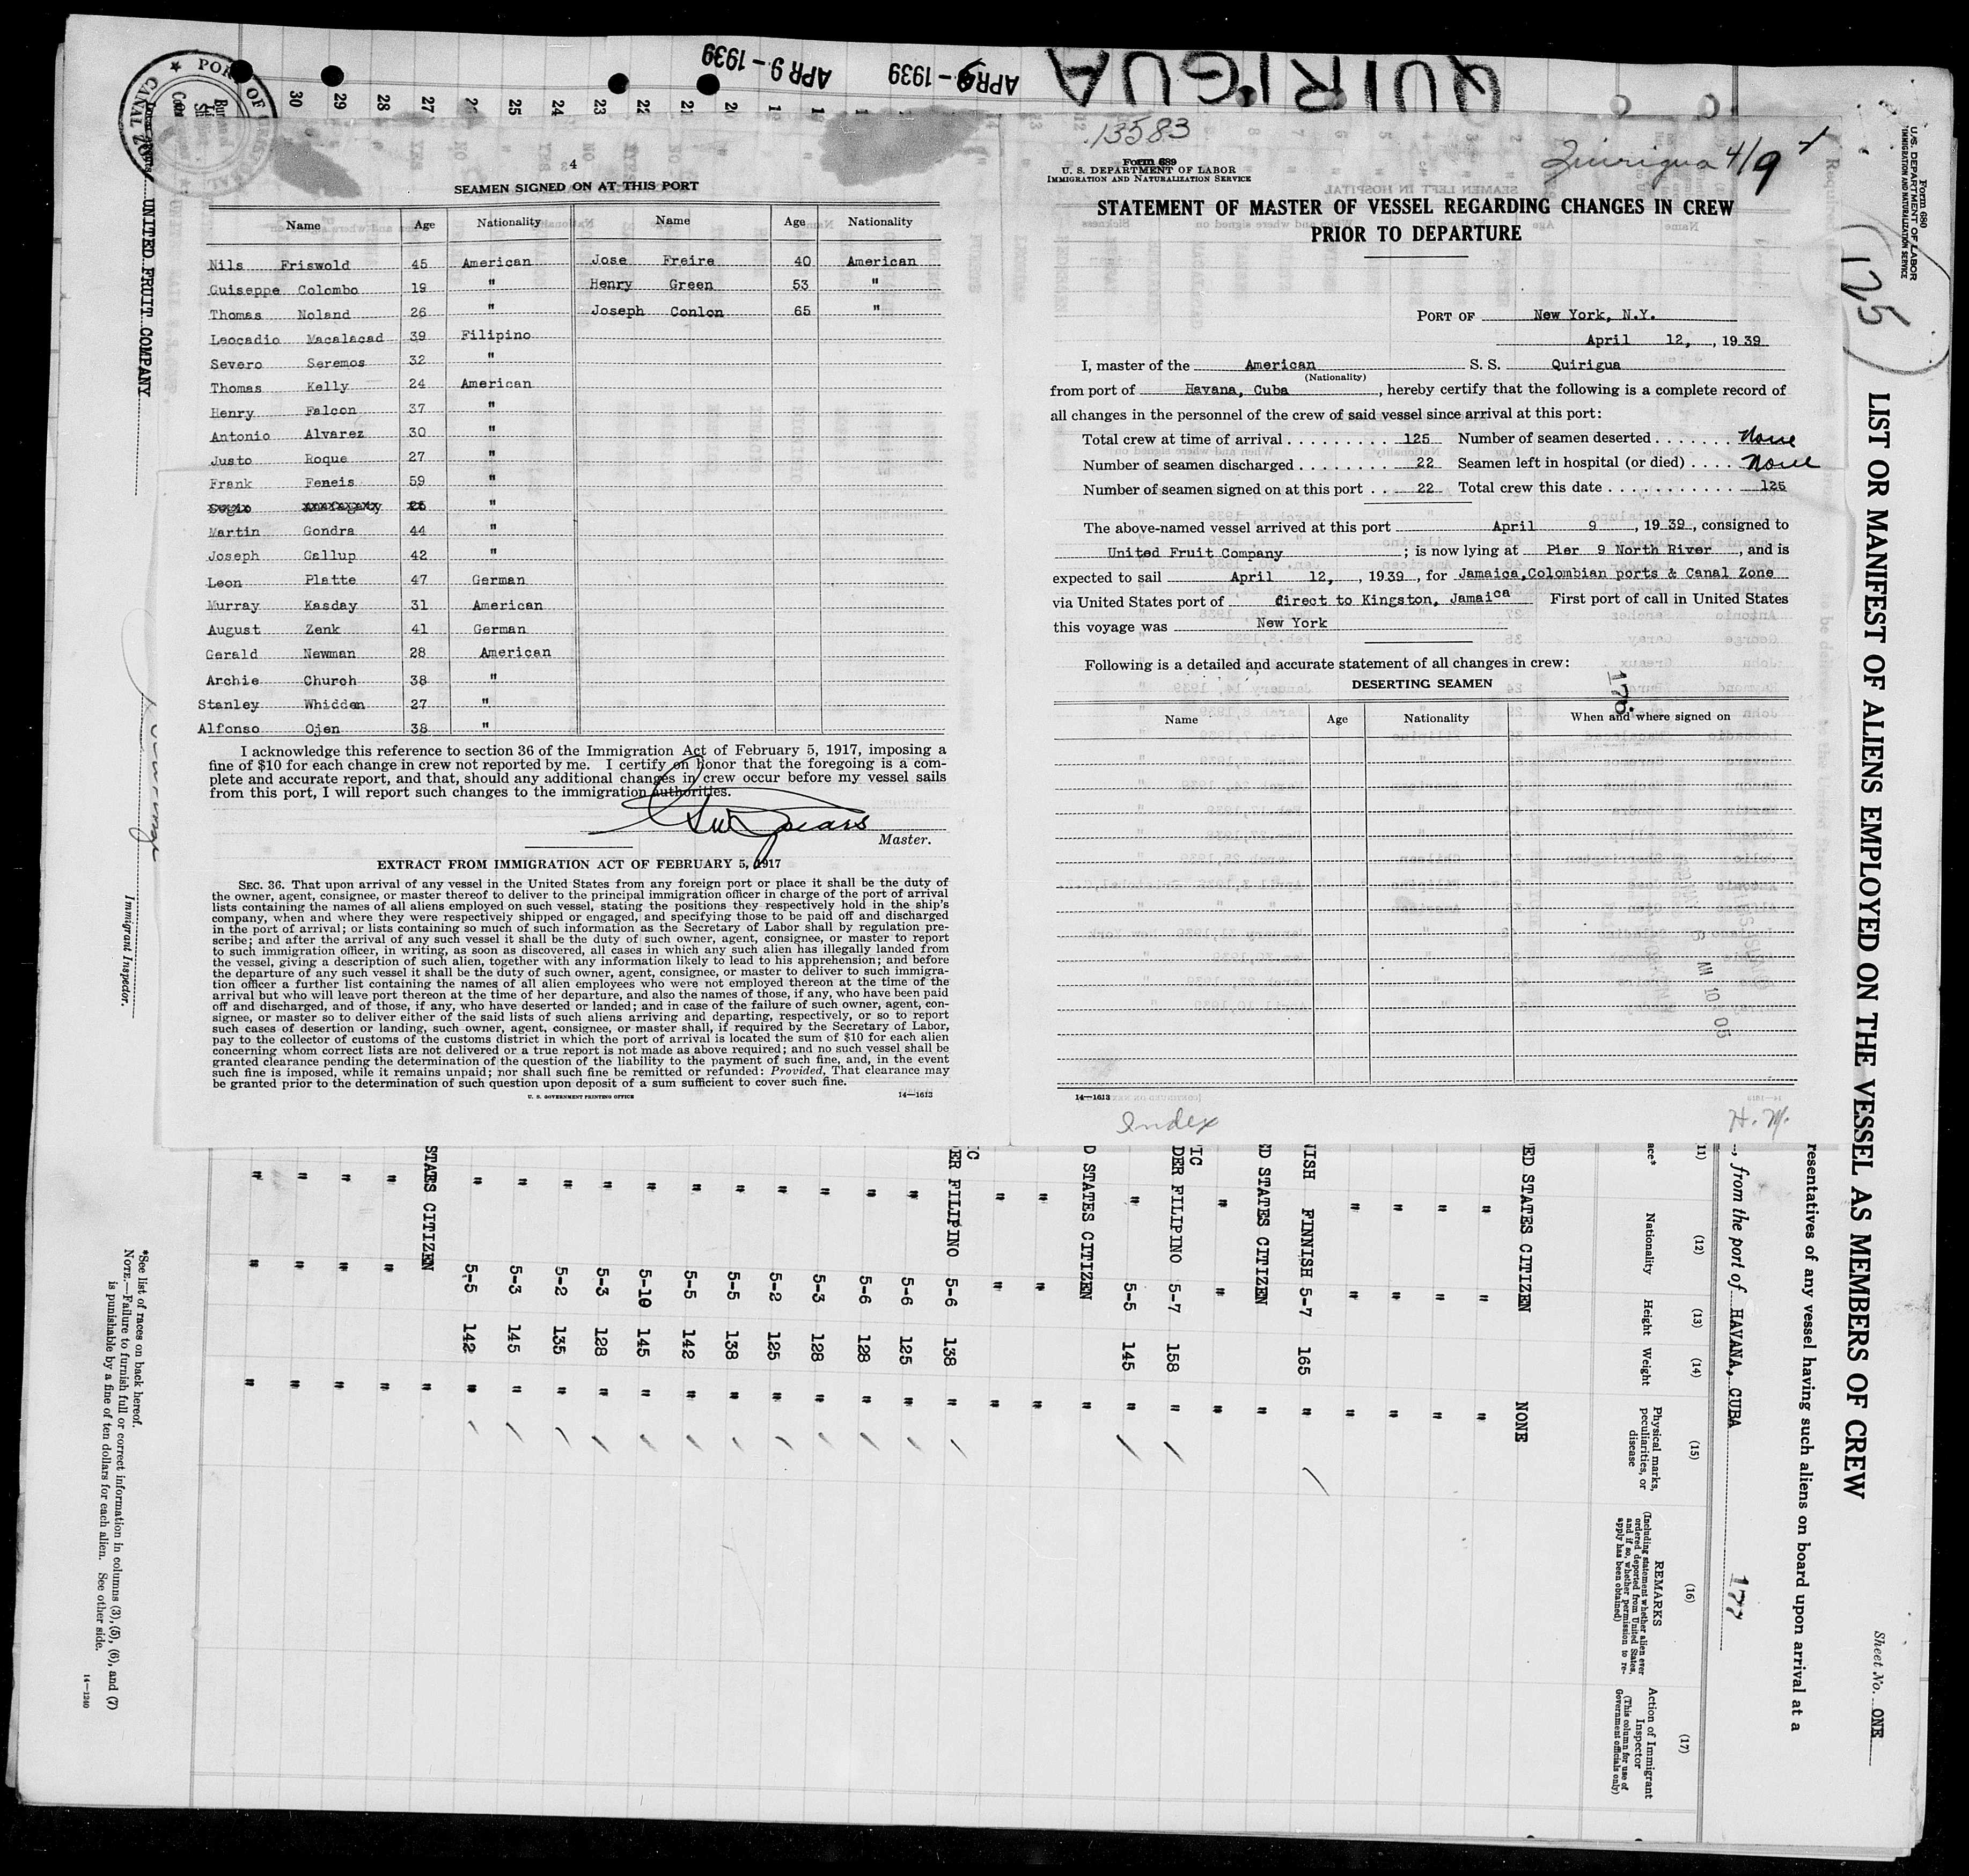 APR 9 - 1939
APR 9 - 1939
QUIRIGUA
PORT OF
CANAL ZO
30 29 28 27 25 24 23 22 21
UNITED FRUIT COMPANY
Immigrant Inspector.
4
SEAMEN SIGNED ON AT THIS PORT
Name Age Nationality Name Age Nationality
Nils Friswold 45 American Jose Freire 40 American
Guiseppe Colombo 19 " Henry Green 53 "
Thomas Noland 26 " Joseph Conlon 65 "
Leocadio Macalacad 39 Filipino
Severo Seremos 32 "
Thomas Kelly 24 American
Henry Falcon 37 "
Antonio Alvarez 30 "
Justo Roque 27 "
Frank Feneis 59 "
"
Martin Gondra 44 "
Joseph Gallup 42 "
Leon Platte 47 German
Murray Kasday 31 American
August Zenk 41 German
Gerald Newman 28 American
Archie Church 38 "
Stanley Whidden 27 "
Alfonso Ojen 38 "
I acknowledge this reference to section 36 of the Immigration Act of February 5, 1917, imposing a
fine of $10 for each change in crew not reported by me. I certify on honor that the foregoing is a com-
plete and accurate report, and that, should any additional changes in crew occur before my vessel sails
from this port, I will report such changes to the immigration authorities.
Master.
EXTRACT FROM IMMIGRATION ACT OF FEBRUARY 5, 1917
SEC. 36. That upon arrival of any vessel in the United States from any foreign port or place it shall be the duty of
the owner, agent, consignee, or master thereof to deliver to the principal immigration officer in charge of the port of arrival
lists containing the names of all aliens employed on such vessel, stating the positions they respectively hold in the ship's
company, when and where they were respectively shipped or engaged, and specifying those to be paid off and discharged
in the port of arrival; or lists containing so much of such information as the Secretary of Labor shall by regulation pre-
scribe; and after the arrival of any such vessel it shall be the duty of such owner, agent, consignee, or master to report
to such immigration officer, in writing, as soon as discovered, all cases in which any such alien has illegally landed from
the vessel, giving a description of such alien, together with any information likely to lead to his apprehension; and before
the departure of any such vessel it shall be the duty of such owner, agent, consignee, or master to deliver to such immigra-
tion officer a further list containing the names of all alien employees who were not employed thereon at the time of the
arrival but who will leave port thereon at the time of her departure, and also the names of those, if any, who have been paid
off and discharged, and of those, if any, who have deserted or landed; and in case of the failure of such owner, agent, con-
signee, or master so to deliver either of the said lists of such aliens arriving and departing, respectively, or so to report
such cases of desertion or landing, such owner, agent, consignee, or master shall, if required by the Secretary of Labor,
pay to the collector of customs of the customs district in which the port of arrival is located the sum of $10 for each alien
concerning whom correct lists are not delivered or a true report is not made as above required; and no such vessel shall be
granted clearance pending the determination of the question of the liability to the payment of such fine, and, in the event
such fine is imposed, while it remains unpaid; nor shall such fine be remitted or refunded: Provided, That clearance may
be granted prior to the determination of such question upon deposit of a sum sufficient to cover such fine.
U. S. GOVERNMENT PRINTING OFFICE 14—1613
13583
Quirigua 4/9
Form 689
U. S. DEPARTMENT OF LABOR
IMMIGRATION AND NATURALIZATION SERVICE
STATEMENT OF MASTER OF VESSEL REGARDING CHANGES IN CREW
PRIOR TO DEPARTURE
PORT OF New York, N.Y.
April 12, , 1939
I, master of the American S. S. Quirigua
(Nationality)
from port of Havana, Cuba , hereby certify that the following is a complete record of
all changes in the personnel of the crew of said vessel since arrival at this port:
Total crew at time of arrival . . . . . . . . . 125 Number of seamen deserted . . . . . . . None
Number of seamen discharged . . . . . . . . 22 Seamen left in hospital (or died) . . . . None
Number of seamen signed on at this port . . 22 Total crew this date . . . . . . . . . . . . 125
The above-named vessel arrived at this port April 9 , 1939 , consigned to
United Fruit Company ; is now lying at Pier 9 North River , and is
expected to sail April 12, , 1939 , for Jamaica,Colombian ports & Canal Zone
via United States port of direct to Kingston, Jamaica First port of call in United States
this voyage was New York
Following is a detailed and accurate statement of all changes in crew:
DESERTING SEAMEN
176
Name Age Nationality When and where signed on
AM 10 05
14—1613
Index
H. M.
Form 680
U. S. DEPARTMENT OF LABOR
IMMIGRATION AND NATURALIZATION SERVICE
125
LIST OR MANIFEST OF ALIENS EMPLOYED ON THE VESSEL AS MEMBERS OF CREW
Sheet No. ONE
resentatives of any vessel having such aliens on board upon arrival at a
, from the port of HAVANA, CUBA
177
(11) (12) (13) (14) (15) (16) (17)
ace* Nationality Height Weight Physical marks, peculiarities, or disease
REMARKS
(Including statement whether alien ever ordered deported from United States, and if so, whether permission to reapply has been obtained)
Action of Immigrant Inspector
(This column for use of Government officials only)
ED STATES CITIZEN NONE
" " "
" " "
" " "
" " "
NISH FINNISH 5-7 165 "
ED STATES CITIZEN "
" " "
DER FILIPINO 5-7 158 "
" 5-5 145 "
D STATES CITIZEN "
" " "
" " "
ER FILIPINO 5-6 138 "
" 5-6 125 "
" 5-6 128 "
" 5-3 128 "
" 5-2 125 "
" 5-5 138 "
" 5-5 142 "
" 5-10 145 "
" 5-3 128 "
" 5-2 135 "
" 5-3 145 "
" 5-5 142 "
STATES CITIZEN "
" " "
" " "
" " "
" " "
*See list of races on back hereof.
NOTE.—Failure to furnish full or correct information in columns (3), (5), (6), and (7)
is punishable by a fine of ten dollars for each alien. See other side.
14—1240